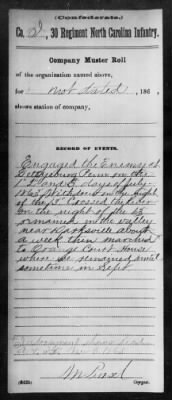 (Confederate.)
Co. I, 30 Regiment North Carolina Infantry.
Company Muster Roll
of the organization named above,
for not dated, 186 ,
shows station of company,
RECORD OF EVENTS.
Engaged the Enemy at
Gettysburg Penn on the
1st 2nd and 3 days of July
1863 Withdrew on the night
of the 3rd Crossed the river
on the night of the
remained in the valley
near Darksville about
a week then marched
to Court House
where we remained until
sometime in Sept
Copyist.